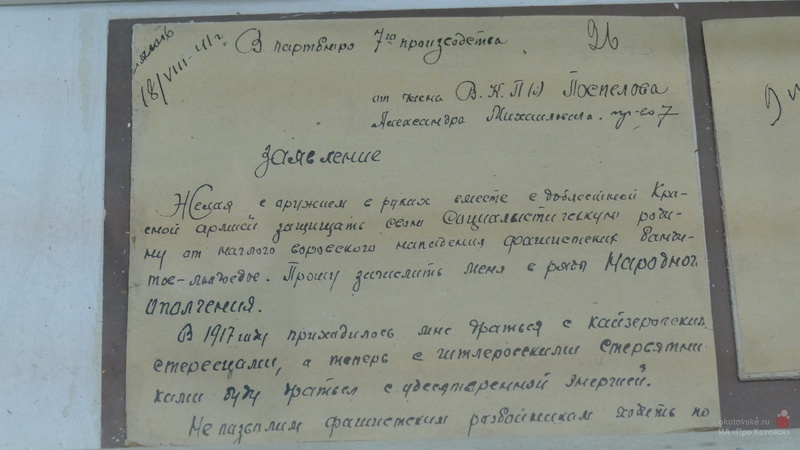 18/VIII-41г.
В партбюро 7го производства
26
от члена В.К.П(б) Поспелова
Александра Михайловича. пр-во 7
Заявление
Желая с оружием в руках вместе с доблестной Кра-
сной армией защищать свою социалистическую роди-
ну от наглого воровского нападения фашистских банди-
тов-людоедов. Прошу зачислить меня в ряды Народного
ополчения.
В 1917 году приходилось мне драться с кайзеровскими
а теперь с гитлеровскими стервятни-
ками буду драться с удесятеренной энергией.
Не позволим фашистским разбойникам ходить по
okotovske.ru
ИА «Про Котовск»